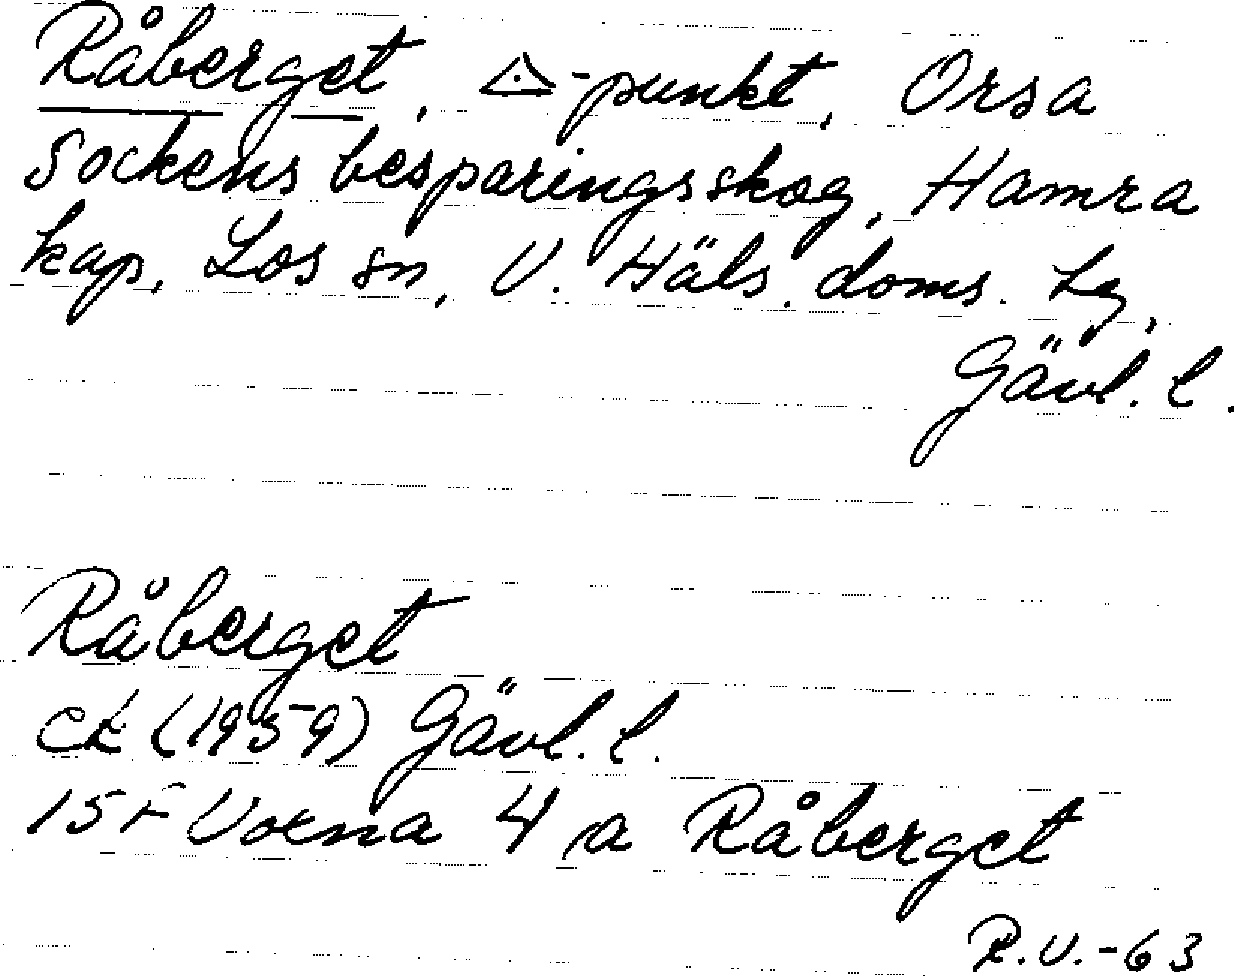 Råberget, △-punkt, Orsa
Sockens besparingsskog, Hamra
kap, Los sn, V. Häls. doms. Lg,
Gävl. l.
Råberget
CK (1959) Gävl. l.
15F Voxna 4 a Råberget
R.V.-63